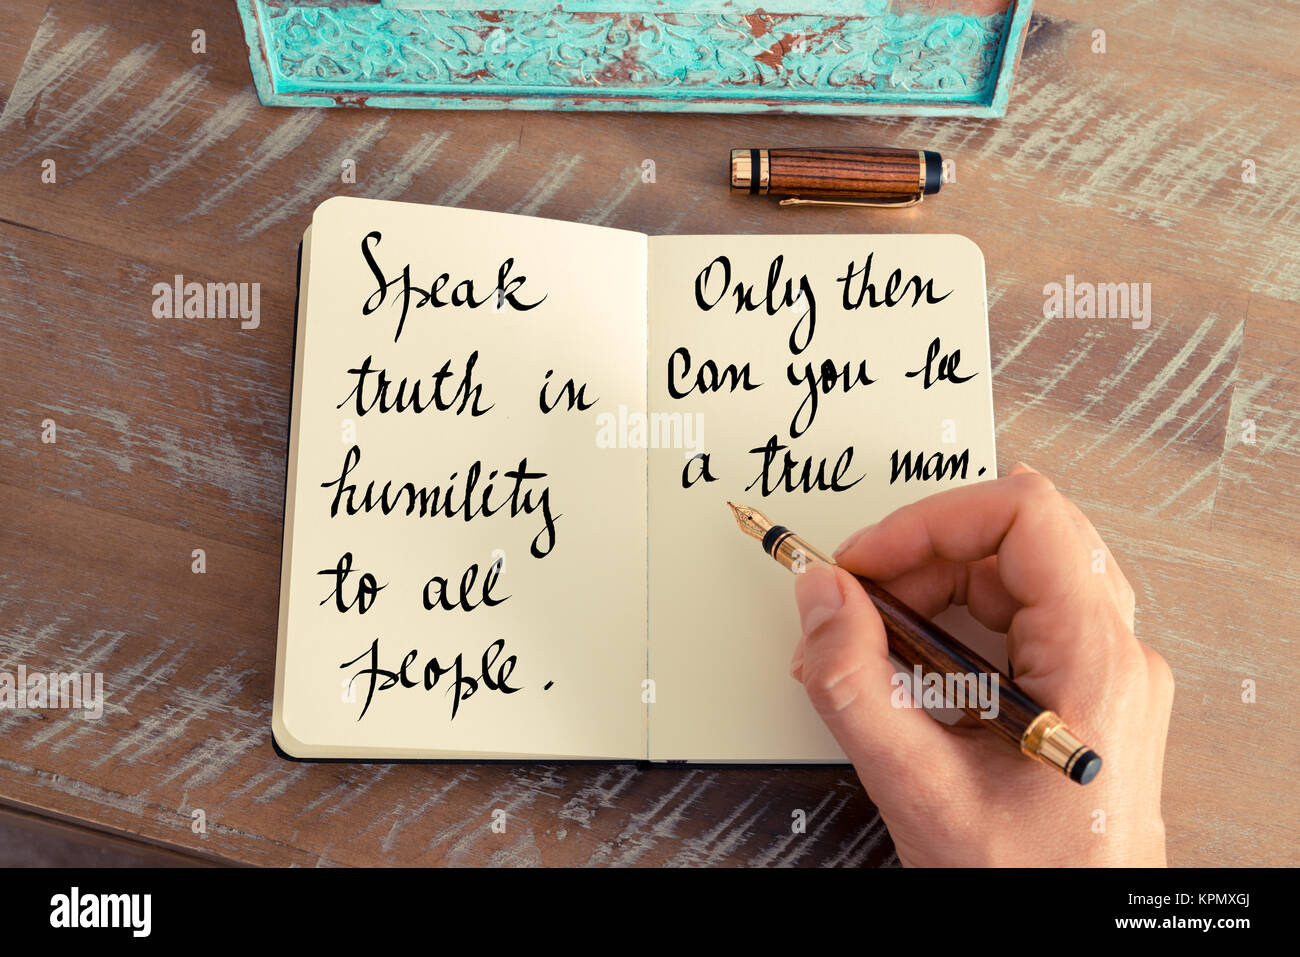 Speak
truth in
humility
to all
people.
Only then
can you be
a true man.
alamy
Image ID: KPMXGJ
www.alamy.com